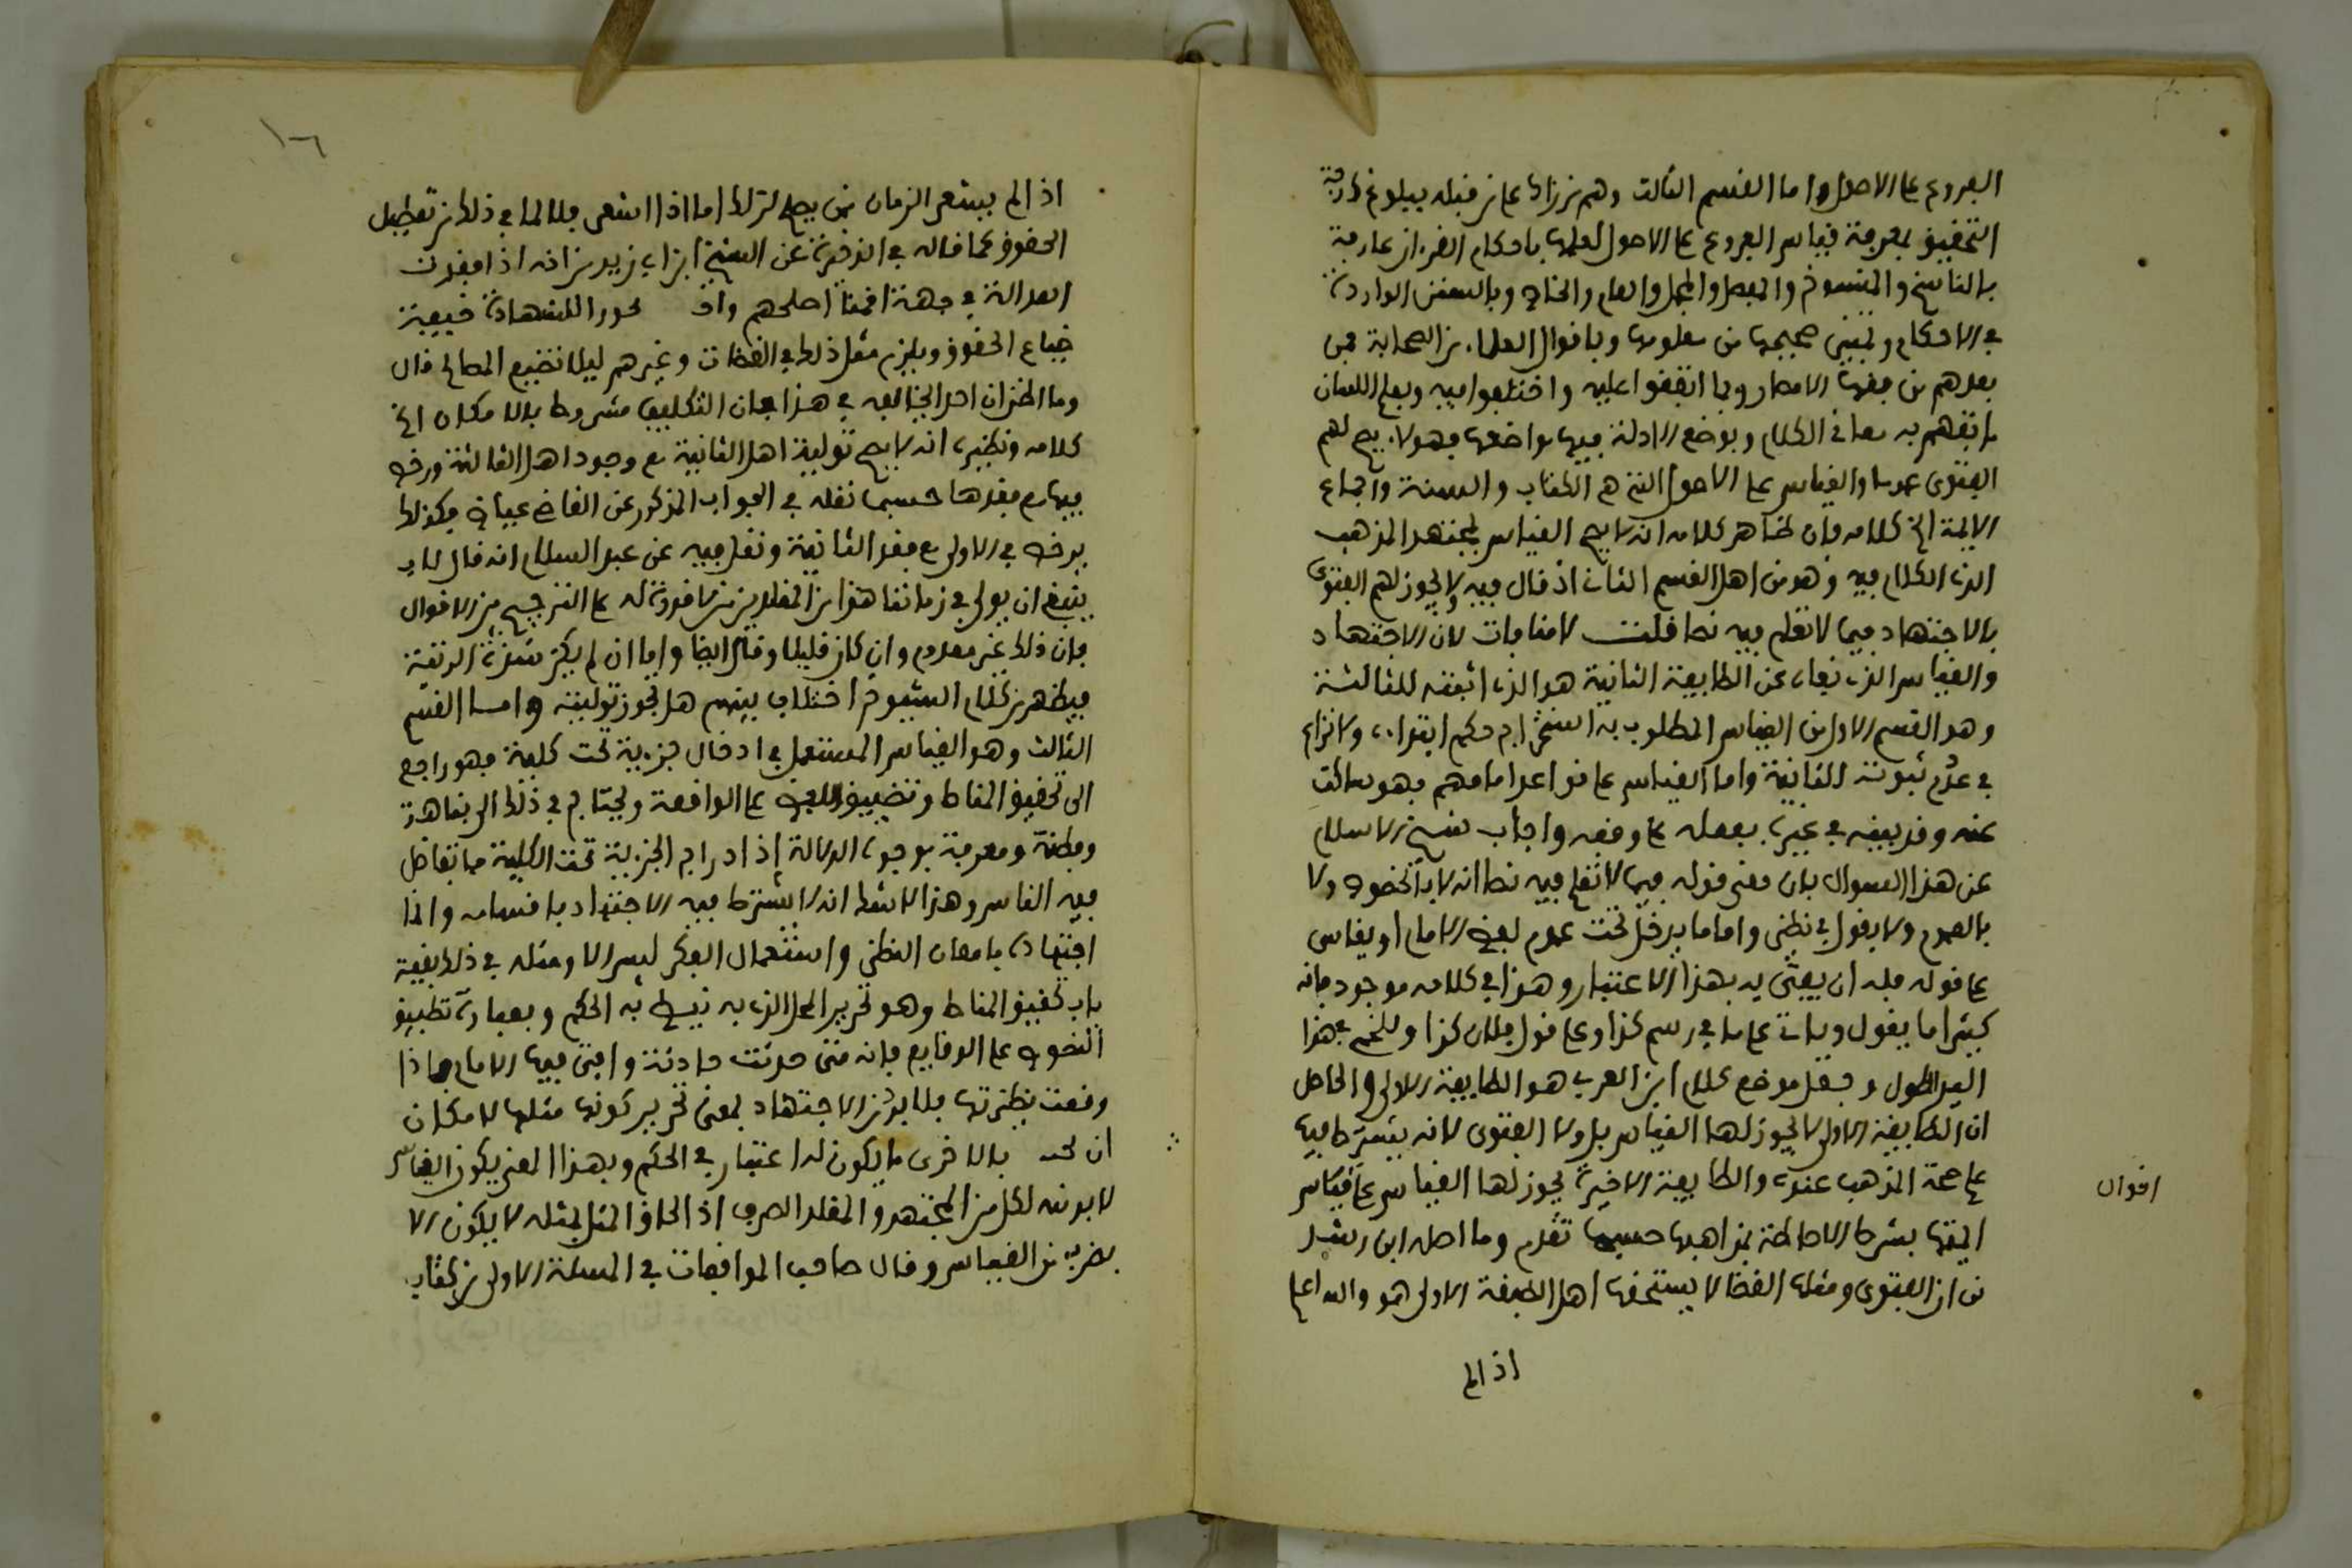 الفروع على الاصول واما القسم الثالث وهم من زاد على من قبله ببلوغ درجة
التحقيق بمعرفة قياس الفروع على الاصول لعلمها باحكام القرءان عارفة
بالناسخ والمنسوخ والمفصل والمجمل والعام والخاص وبالسنن الواردة
في الاحكام وتمييز صحيحها من معلولها وباقوال العلماء من الصحابة فمن
بعدهم من فقهاء الامصار وبما اتفقوا عليه واختلفوا فيه وبعلم اللسان
ما تفهم به معاني الكلام وبوضع الادلة فيها مواضعها فهولاء يصح لهم
الفتوى عموما والقياس على الاصول التي هي الكتاب والسنة واجماع
الايمة الخ كلامه فان ظاهر كلامه انه لا يصح القياس لمجتهد المذهب
الذي الكلام فيه وهو من اهل القسم الثاني اذ قال فيه ولا يجوز لهم الفتوى
بالاجتهاد فيما لا نعلم فيه نصا قلت لا منافات لان الاجتهاد
والقياس الذي نفاه عن الطايفة الثانية هو الذي اثبته للثالثة
وهو القسم الاول من القياس المطلوب به استخراج حكم ابتداء ولا نزاع
في عدم ثبوته للثانية واما القياس على قواعد امامهم فهو ساكت
عنه وقد بينه في غيره بفعله كما وقفه واجاب شيخ الاسلام
عن هذا السوال بان معنى قوله فيما لا نعلم فيه نصا انه لا بالخصوص ولا
بالعموم ولا يقول في نظير واما ما يدخل تحت عموم لفظ الامام او يقاس
على قوله فله ان يفتي به بهذا الاعتبار وهذا في كلامه موجود فانه
كثيرا ما يقول وياتي على ما في رسم كذا وعلى قول فلان كذا وللخمي في هذا
اليد الطولى وجعل موضع كلام ابن العربي هو الطايفة الاولى والحاصل
ان الطايفة الاولى لا يجوز لها القياس بل ولا الفتوى لانه يشترط فيها
علم صحة المذهب عنده والطايفة الاخيرة يجوز لها القياس على قياس
اقوال
ايمتها بشرط الاحاطة بمذاهبها حسبما تقدم وما اصله ابن رشد
من ان الفتوى ومثلها القضا لا يستحقها اهل الطبقة الاولى هو والله اعلم
اذا لم
١٦
اذا لم يشغر الزمان عمن يصح لذلك اما اذا اشغر فلا لما في ذلك من تعطيل
الحقوق كما قاله في الذخيرة عن الشيخ ابن ابي زيد من انه اذا فقدت
العدالة في جهة اقمنا اصلحهم واقلهم فجورا للشهادة خيفة
ضياع الحقوق ويلزم مثل ذلك في القضات وغيرهم ليلا تضيع المصالح قال
وما اظن ان احدا يخالف في هذا فان التكليف مشروط بالامكان الخ
كلامه ونظيره انه لا يصح تولية اهل الثانية مع وجود اهل الثالثة ورخص
فيها مع فقدها حسبما نقله في الجواب المذكور عن القاضي عياض فكذلك
يرخص في الاولى مع فقد الثانية ونقل فيه عن عبد السلام انه قال لا
ينبغي ان يولى في زماننا هذا من المقلدين من لا قدرة له على الترجيح بين الاقوال
فان ذلك غير معدوم وان كان قليلا وقال ايضا واما ان لم يكن بهذه المرتبة
فيظهر من كلام الشيوخ اختلاف بينهم هل يجوز توليته واما القسم
الثالث وهو القياس المستعمل في ادخال جزءية تحت كلية فهو راجع
الى تحقيق المناط وتطبيق النص على الواقعة ويحتاج في ذلك الى نباهة
وفطنة ومعرفة بوجوه الدلالة إذ ادراج الجزءية تحت الكلية مما تفاضل
فيه الناس وهذا لا شك انه لا يشترط فيه الاجتهاد باقسامه وانما
اجتهاده بامعان النظر واستعمال الفكر ليس الا ومثله في ذلك بقية
باب تحقيق المناط وهو تحرير المحل الذي به نيط به الحكم وبعبارة تطبيق
النصوص على الوقايع فانه متى حدثت حادثة وافتى فيها الامام فاذا
وقعت نظيرتها فلا بد من الاجتهاد بمعنى تحرير كونها مثلها لامكان
ان بالاخرى ما يكون له اعتبار في الحكم وبهذا المعنى يكون القياس
لا بد منه لكل من المجتهد والمقلد الصرف اذ الحاق المثل بمثله لا يكون الا
بضرب من القياس وقال صاحب الموافقات في المسئلة الاولى من كتاب